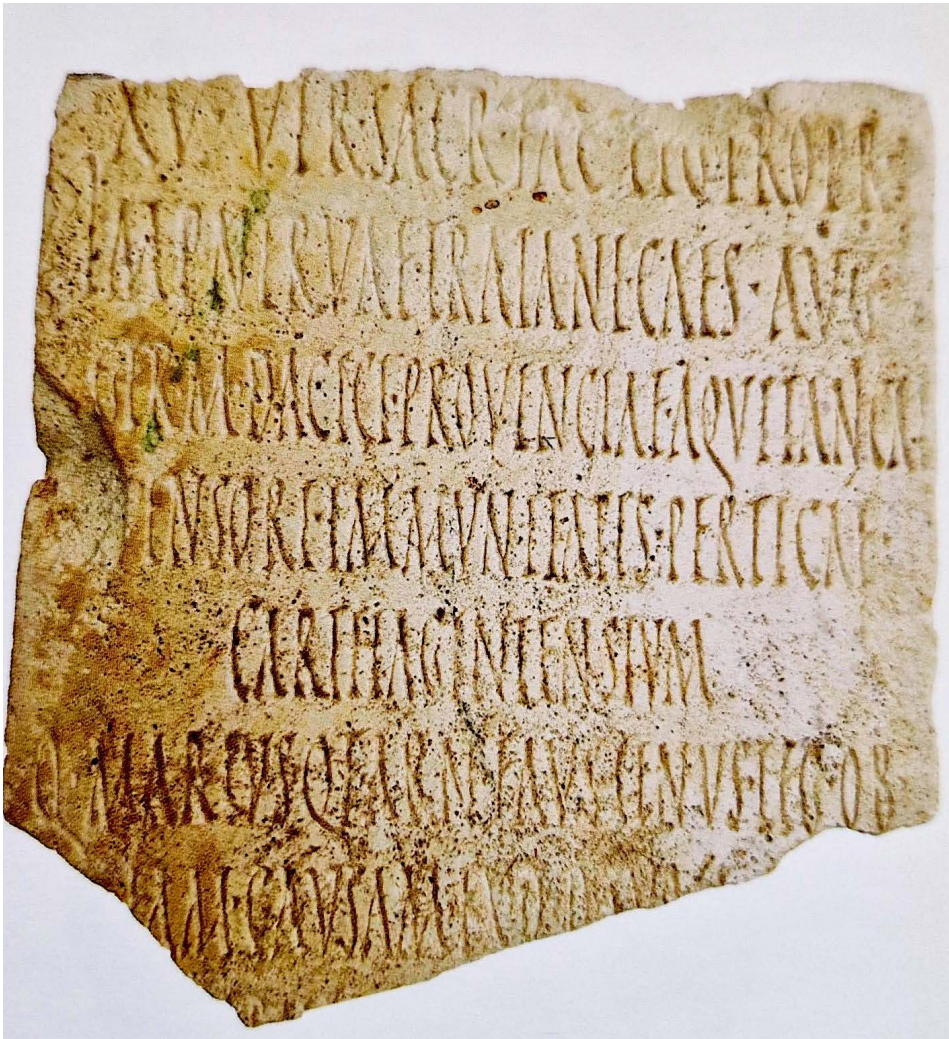 XV VIR SACR FAC LEG PRO PR
IMP NERVAE TRAIANI CAES · AVG
GERM · DACICI PROVINCIAE AQVITANICA
ENSORI IMMVNITATIS · PERTICAE
CARTHAGINIENSIVM
Q · MARCIVS Q F ARN FAVSTINVS · OB